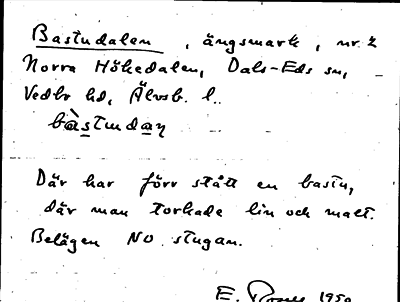 Bastudalen, ängsmark, nr. 2
Norra Höhedalen, Dals-Eds sn,
Vedbo hd, Älvsb. l.
bàstudaɳ
Där har förr stått en bastu,
där man torkade lin och malt.
Belägen NO stugan.
E. 1950